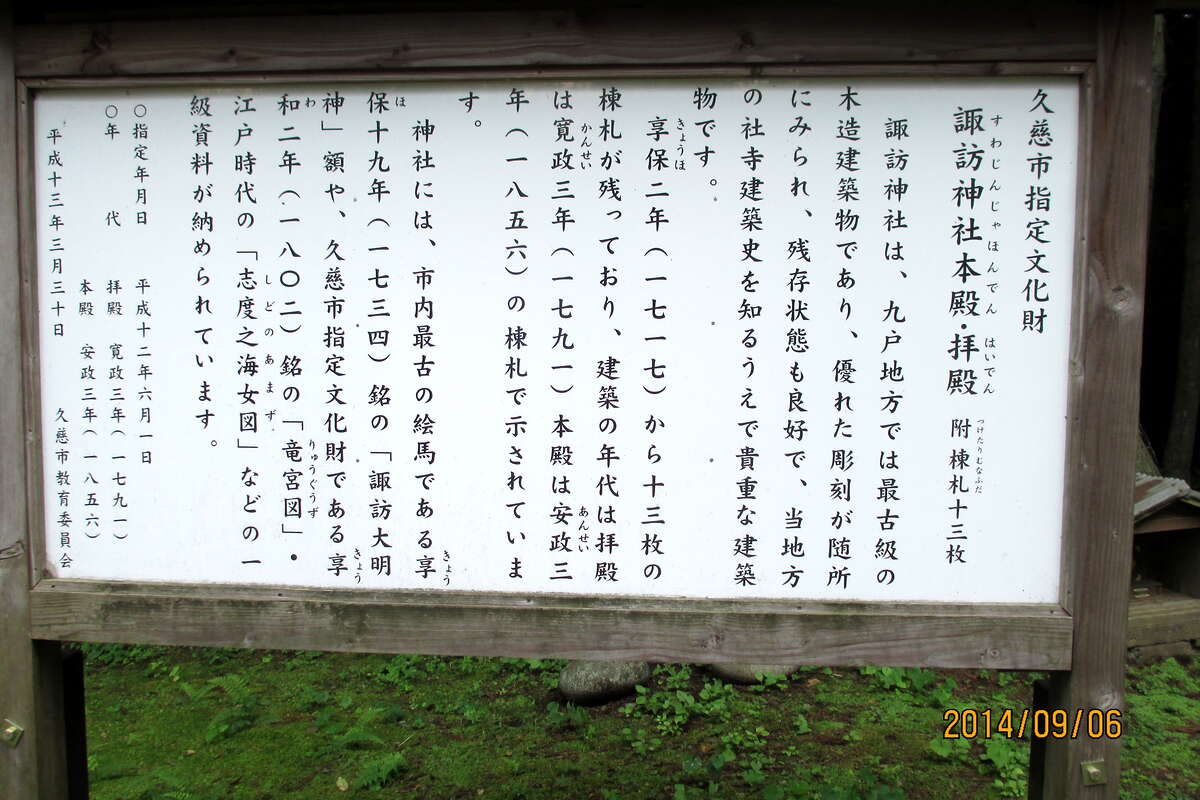 久慈市指定文化財
諏訪神社本殿・拝殿 附棟札十三枚
すわじんじゃほんでん はいでん つけたりむなふだ
諏訪神社は、九戸地方では最古級の
木造建築物であり、優れた彫刻が随所
にみられ、残存状態も良好で、当地方
の社寺建築史を知るうえで貴重な建築
物です。
享保二年(一七一七)から十三枚の
きょうほ
棟札が残っており、建築の年代は拝殿
は寛政三年(一七九一)本殿は安政三
かんせい あんせい
年(一八五六)の棟札で示されていま
す。
神社には、市内最古の絵馬である享
きょう
保十九年(一七三四)銘の「諏訪大明
ほ
神」額や、久慈市指定文化財である享
きょう
和二年(一八〇二)銘の「竜宮図」・
わ りゅうぐうず
江戸時代の「志度之海女図」などの一
しどのあまず
級資料が納められています。
〇指定年月日 平成十二年六月一日
〇年 代 拝殿 寛政三年(一七九一)
本殿 安政三年(一八五六)
平成十三年三月三十日 久慈市教育委員会
2014/09/06